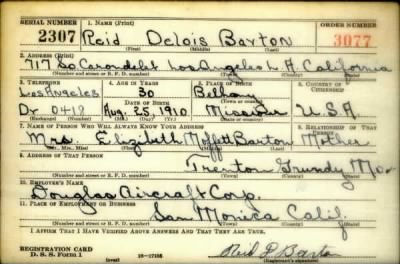 SERIAL NUMBER 1. NAME (Print) ORDER NUMBER
2307 Reid Delois Barton 3077
(First) (Middle) (Last)
2. ADDRESS (Print)
717 So Carondelet Los Angeles L.A. California
(Number and street or R. F. D. number) (Town) (County) (State)
3. TELEPHONE 4. AGE IN YEARS 5. PLACE OF BIRTH 6. COUNTRY OF CITIZENSHIP
Los Angeles 30 Bethany
DATE OF BIRTH (Town or county)
Dr 0412 Aug. 25 1910 Missouri U.S.A.
(Exchange) (Number) (Mo.) (Day) (Yr.) (State or country)
7. NAME OF PERSON WHO WILL ALWAYS KNOW YOUR ADDRESS 8. RELATIONSHIP OF THAT PERSON
Mrs. Elizabeth Moffitt Barton Mother
(Mr., Mrs., Miss) (First) (Middle) (Last)
9. ADDRESS OF THAT PERSON
Trenton Grundy Mo.
(Number and street or R. F. D. number) (Town) (County) (State)
10. EMPLOYER'S NAME
Douglas Aircraft Corp.
11. PLACE OF EMPLOYMENT OR BUSINESS
Santa Monica Calif.
(Number and street or R. F. D. number) (Town) (County) (State)
I AFFIRM THAT I HAVE VERIFIED ABOVE ANSWERS AND THAT THEY ARE TRUE.
REGISTRATION CARD
D. S. S. FORM 1 (over) 16—17105 Reid D Barton
(Registrant's signature)